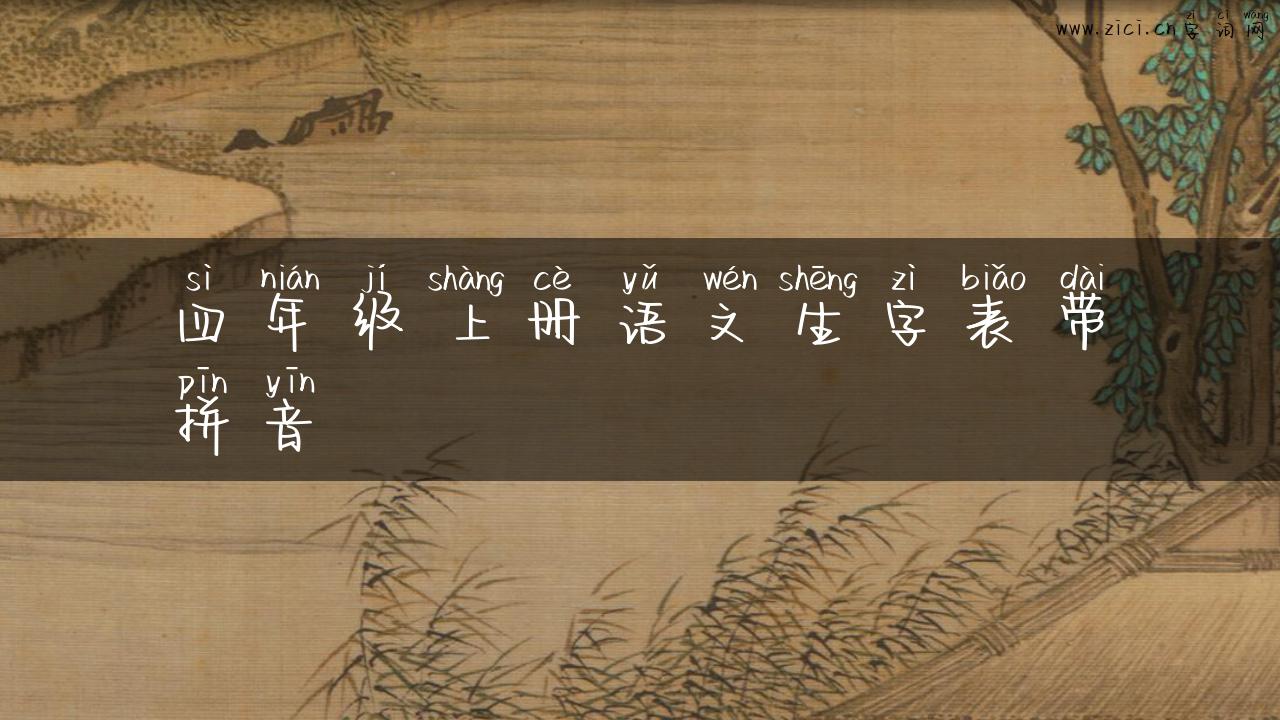 zì cí wǎng
www.zici.cn 字 词 网
sì nián jí shàng cè yǔ wén shēng zì biǎo dài
四 年 级 上 册 语 文 生 字 表 带
pīn yīn
拼 音